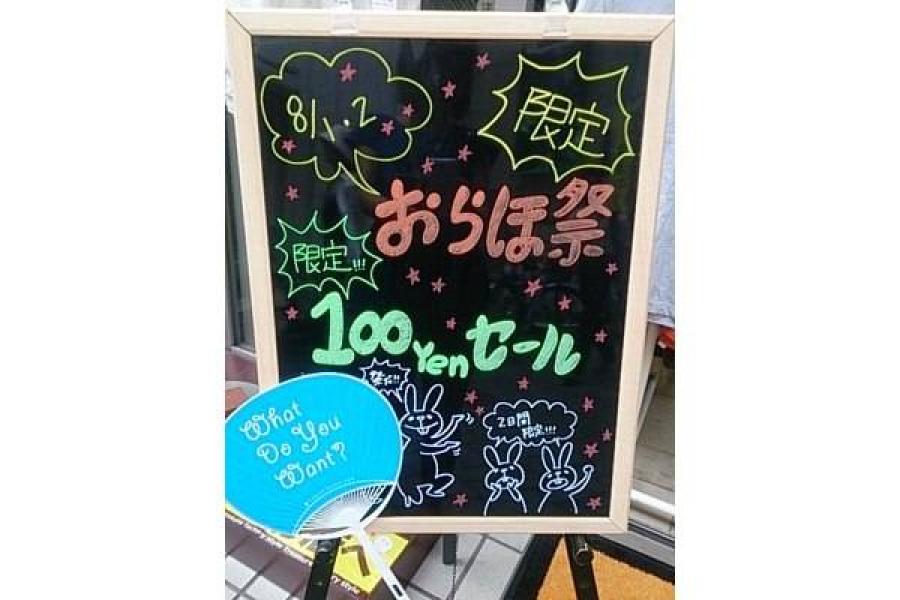 8/1.2
限定
おらほ祭
限定!!!
100yenセール
祭だ!!
2日間
限定!!!
What
Do You
Want?